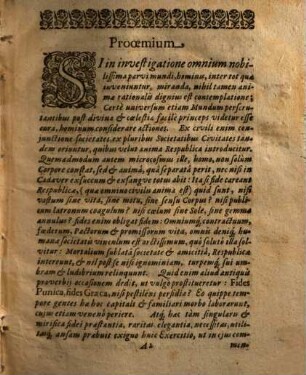 Prooemium.
SI in investigatione omnium nobi-
lissima parvi mundi, hominis, inter tot quæ
inveniuntur, miranda, nihil tamen anima
rationali dignius est contemplatione:
Certè universum etiam Mundum perscru-
tantibus post divina & cœlestia facilè princeps videtur esse
cura, hominum considerare actiones. Ex civili enim con-
junctione societates, ex pluribus Societatibus Civitates tan-
dem oriuntur, quibus velut anima Respublica introducitur.
Quemadmodum autem microcosmus ille, homo, non solùm
Corpore constat, sed & animâ, quâ separatâ perit, nec nisi in
Cadaver exsuccum & exsangve totus abit: Ita si side careant
Respublicæ, (quæ omnino civilis anima est) quid sunt, nisi
vastum sine vita, sine motu, sine sensu Corpus? nisi publi-
cum humanorum coagulum? nisi cœlum sine Sole, sine gemma
annulus? fides enim obligat fidem: Omnium, contractuum,
fœderum, Pactorum & promissorum vita, omnis deniq; hu-
manæ societatis vinculum est ordissimum, quâ salutè illa sol-
vitur: Mortalium sublatâ societate & amicitiâ, Respublica
intereunt, & nil post se nisi ignominiam, turpemq; sui um-
bram & ludibrium relinquunt. Quid enim aliud antiquis
proverbii occasionem dedit, ut vulgò prostitueretur: Fides
Punica, fides Græca, nisi postilens perfidia? Eo quippe tem-
pore gentes ha hoc capitali & familiari morbo laborarunt,
cujus etiam venenô periere. Atq; hac tàm singularis &
mirifica fidei præstantia, raritas, elegantia, necessitas, utili-
tasq; ansam præbuit exiguo huic Exercitio, ut in ejus con-
A 2